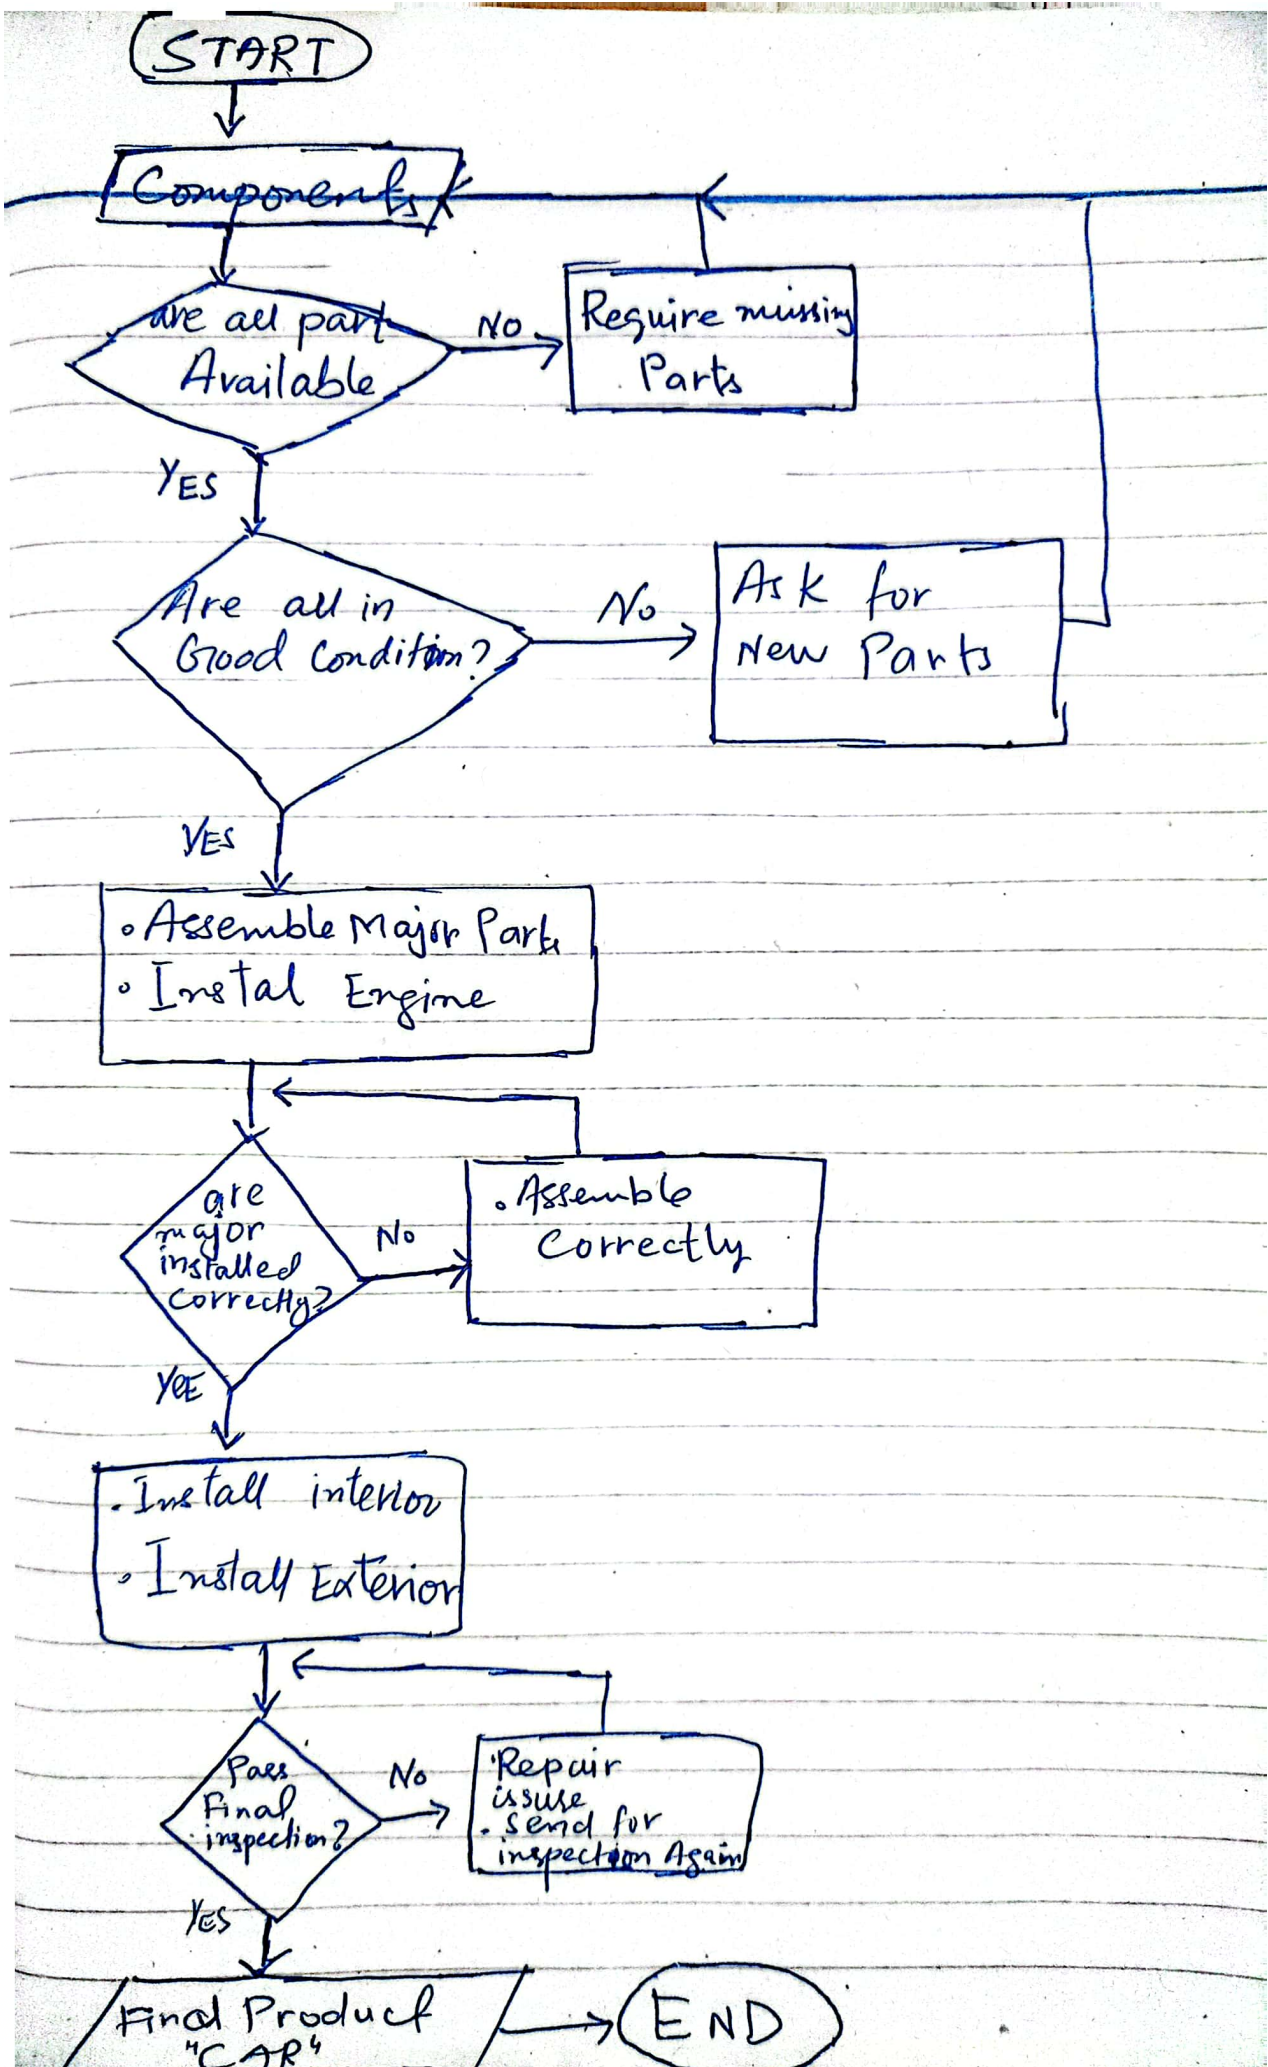 START
Components
are all part
Available
NO
Require missing
Parts
YES
Are all in
Good Condition?
No
Ask for
New Parts
YES
• Assemble Major Parts
• Instal Engine
are
major
installed
correctly?
No
• Assemble
Correctly
YEE
• Install interior
• Install Exterior
Pass
Final
inspection?
No
• Repair
issuse
• send for
inspection Again
YES
Final Product
"CAR"
END